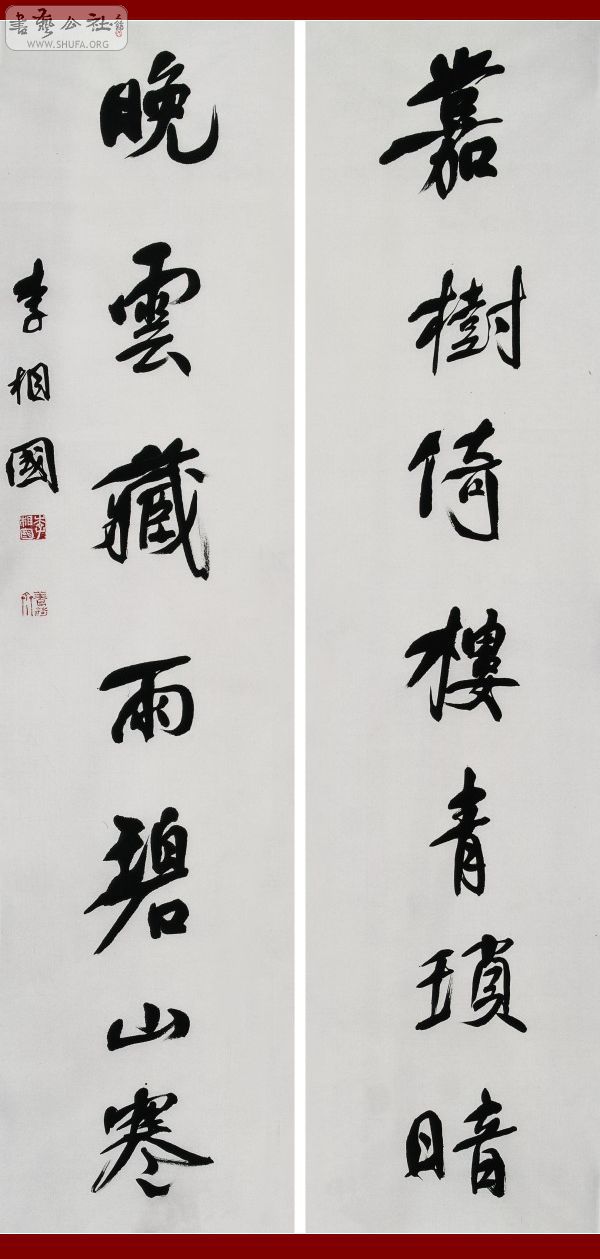 嘉樹倚樓青瑣暗
晚雲藏雨碧山寒
李相國
書藝公社
WWW.SHUFA.ORG